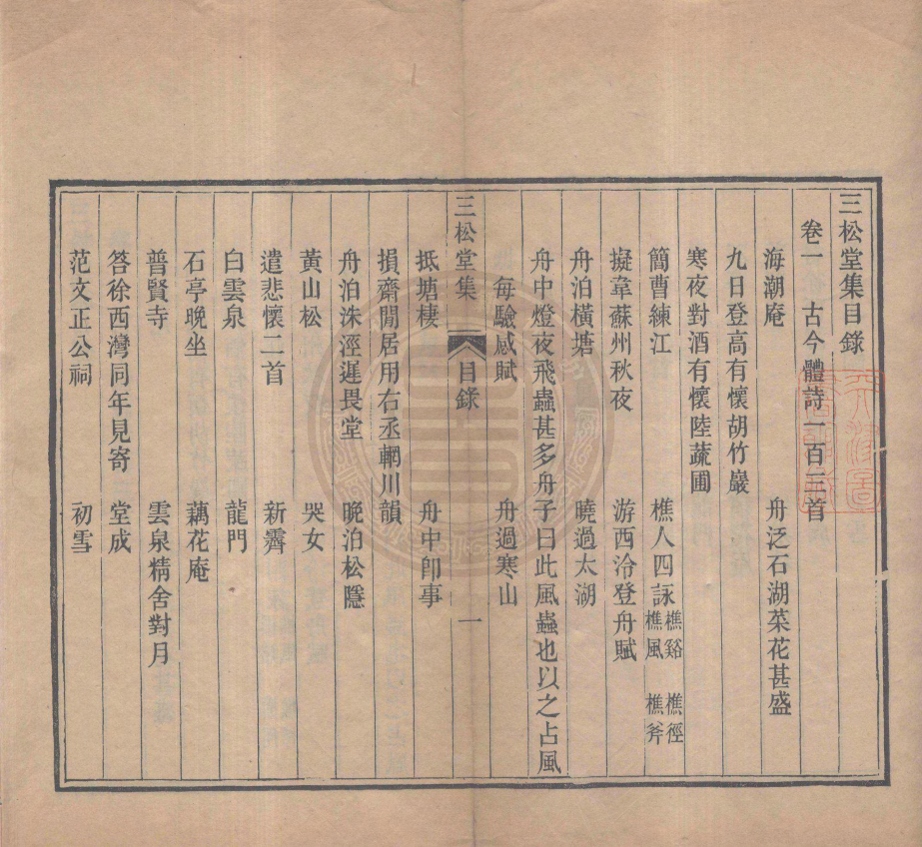 三松堂集目錄
卷二　古今體詩一百三首
海潮庵　舟泛石湖菜花甚盛
九日登高有懷胡竹巖
寒夜對酒有懷陸蔬圃
簡曹練江　樵人四詠樵谿　樵徑　樵風　樵斧
擬韋蘇州秋夜　游西泠登舟賦
舟泊橫塘　曉過太湖
舟中燈夜飛蟲甚多舟子曰此風蟲也以之占風
每驗感賦　舟過寒山
三松堂集　目錄　一
抵塘棲　舟中卽事
損齋閒居用右丞輞川韻
舟泊洙涇遲畏堂　晚泊松隱
黃山松　哭女
遣悲懷二首　新霽
白雲泉　龍門
石亭晚坐　藕花庵
普賢寺　雲泉精舍對月
答徐西灣同年見寄　堂成
范文正公祠　初雪